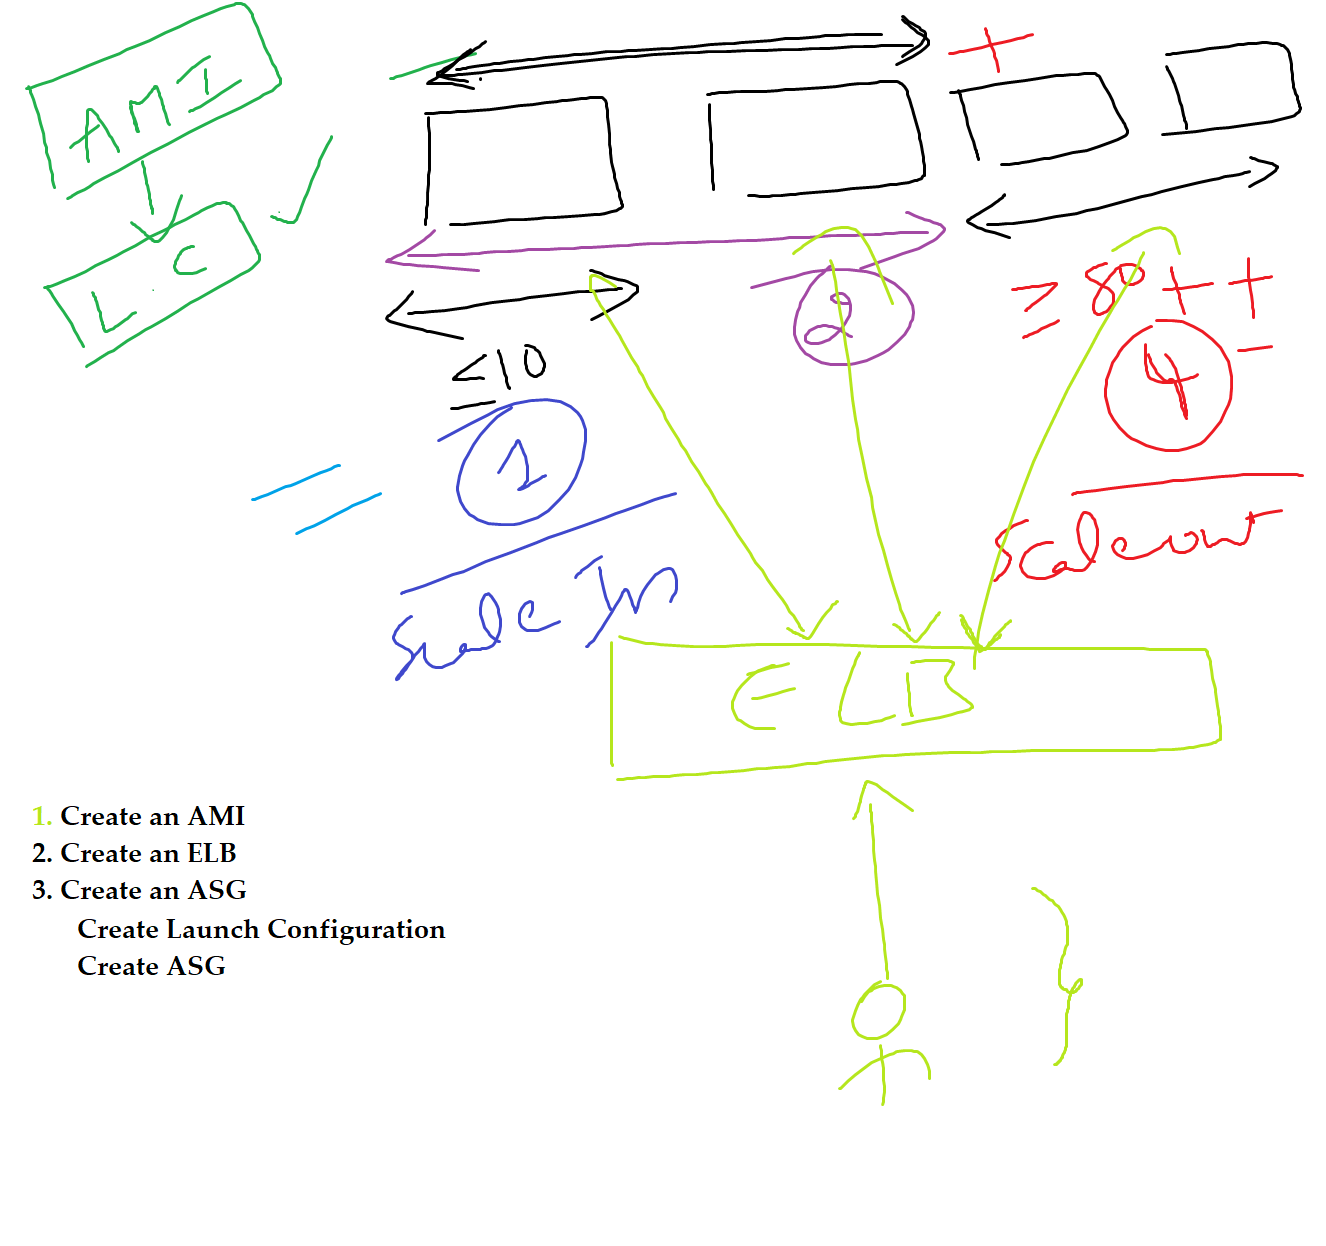 AMI
LC
+
≤10
1
Scale In
2
≥ 80 ++
4
Scale out
ELB
1. Create an AMI
2. Create an ELB
3. Create an ASG
Create Launch Configuration
Create ASG